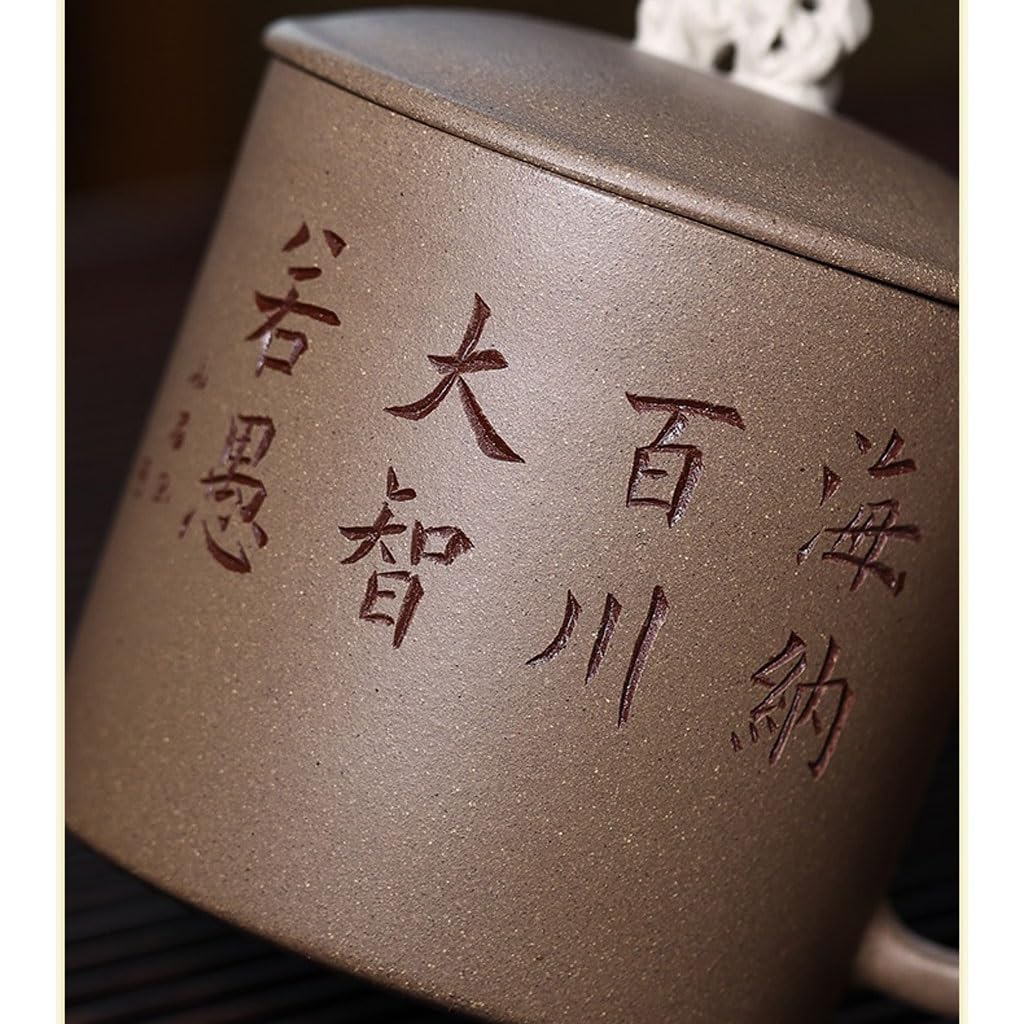 海納
百川
大智
若愚